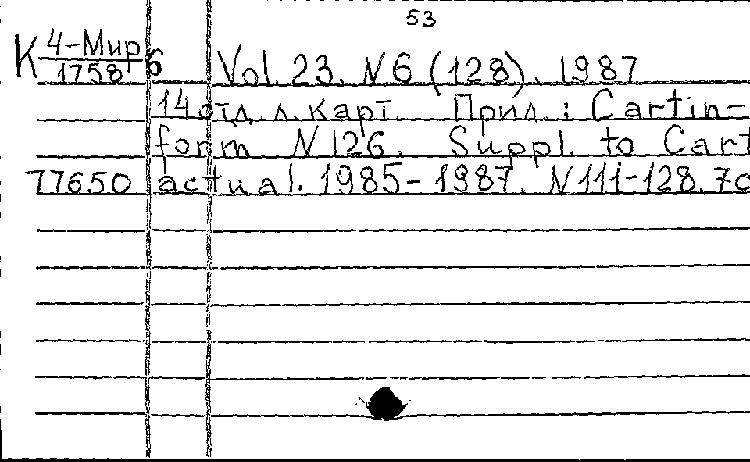 53
К 4-Мир 6
1758
Vol. 23. N 6 (128). 1987
14 отд. л. карт. Прил.: Cartin=
form N 126. Suppl. to Cart
77650 actual. 1985-1987. N 111-128. 7с